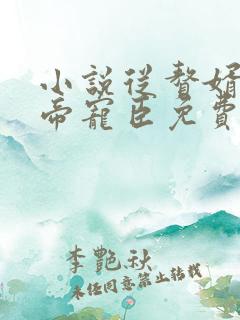 小說從贅婿
帝寵臣免費
李艷秋
未經同意禁止轉載